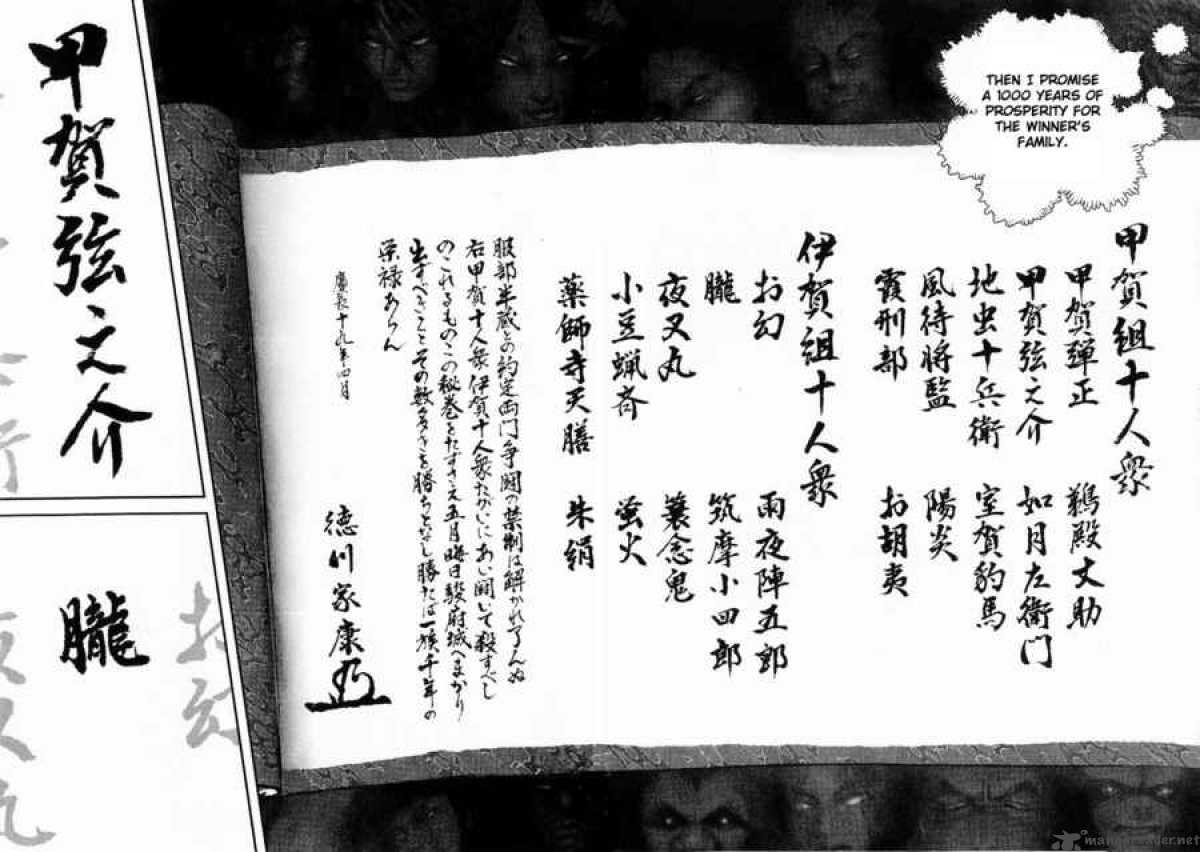 THEN I PROMISE
A 1000 YEARS OF
PROSPERITY FOR
THE WINNER'S
FAMILY.
甲賀組十人衆
甲賀弾正　鵜殿丈助
甲賀弦之介　如月左衛門
地虫十兵衛　室賀豹馬
風待将監　陽炎
霞刑部　お胡夷
伊賀組十人衆
お幻　雨夜陣五郎
朧　筑摩小四郎
夜叉丸　蓑念鬼
小豆蝋斉　蛍火
薬師寺天膳　朱絹
服部半蔵との約定両門争闘の禁制は解かれ了んぬ
右甲賀十人衆伊賀十人衆たがいにあい闘いて殺すべし
のこれるものこの秘巻をたずさえ五月晦日駿府城へまかり
出ずべきことその数多きを勝ちとなし勝たば一族千年の
栄禄あらん
慶長十九年四月
徳川家康
甲賀弦之介
朧
お幻
mangareader.net